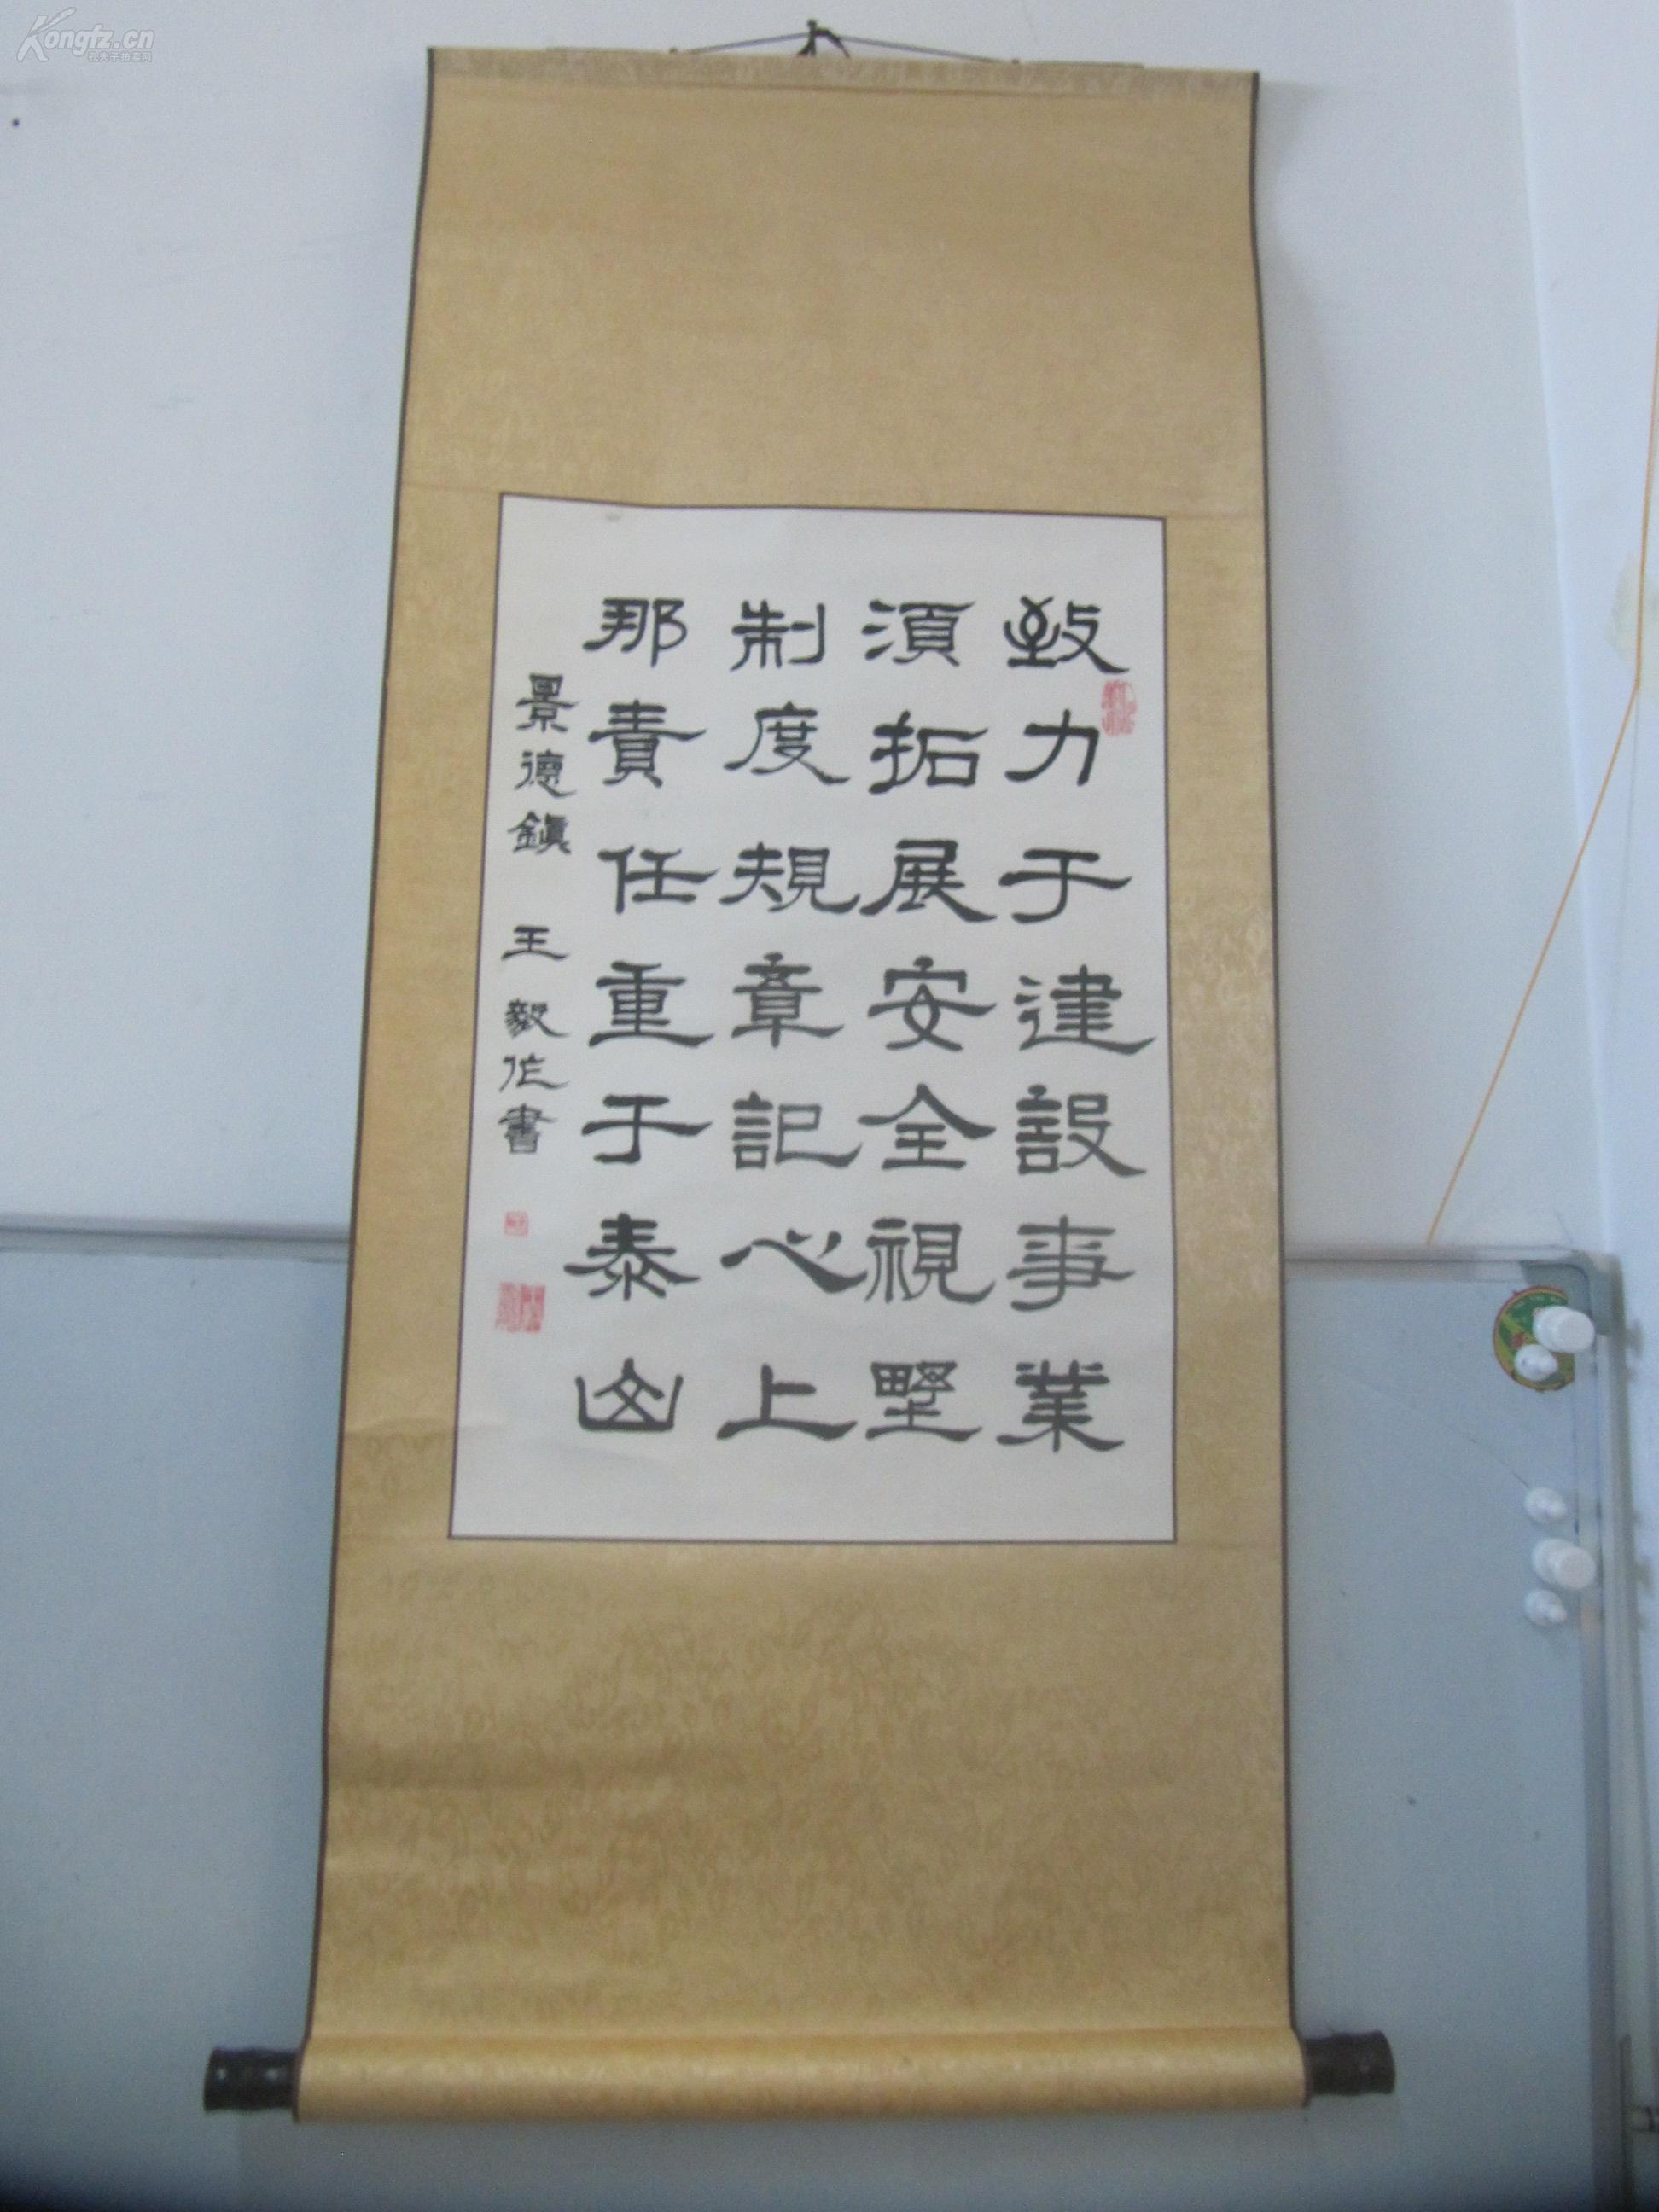 致力于建設事業
須拓展安全視野
制度規章記心上
那責任重于泰山
景德鎮 王毅作書
Kongfz.cn